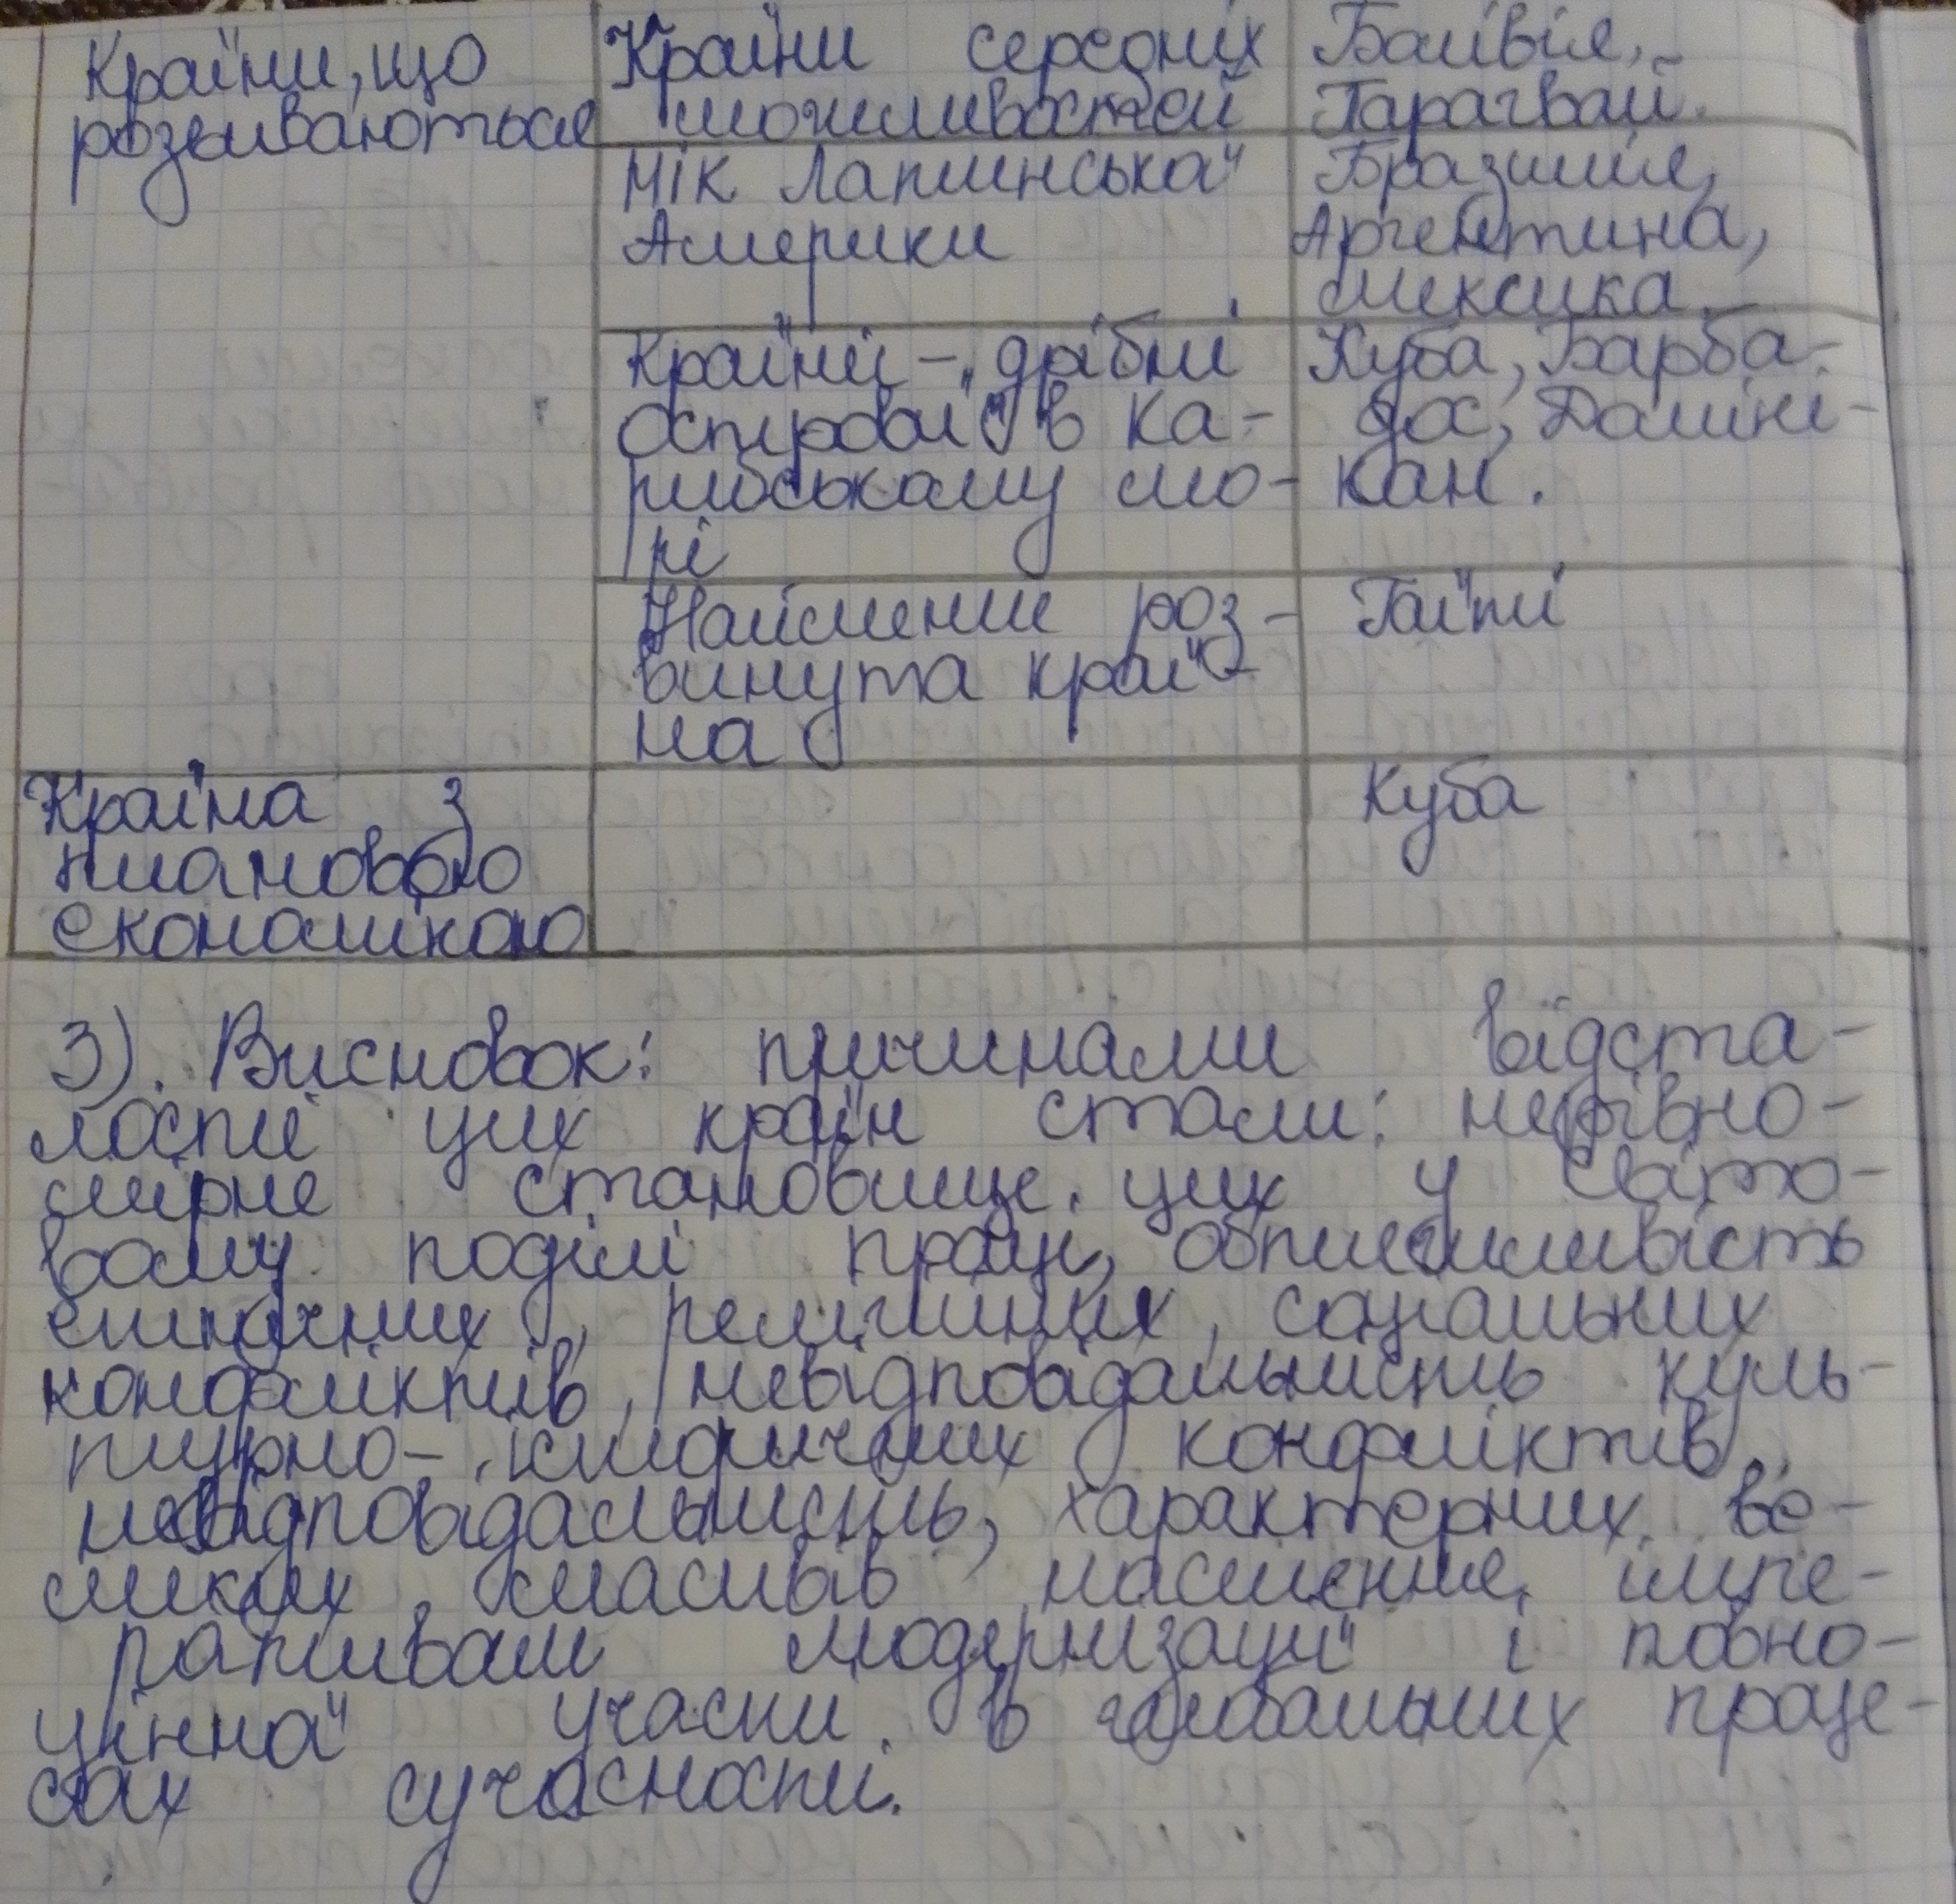 Країни, що
розвиваються
Країни середніх
можливостей
Болівія,
Парагвай.
Нік Латинської
Америки
Бразилія,
Аргентина,
Мексика.
Країни - дрібні
острови в Ка-
рибському мо-
рі
Куба, Барба-
дос, Доміні-
кан.
Найменше роз-
винута краї-
на
Гаїті
Країна з
плановою
економікою
Куба
3). Висновок: причинами відста-
лості цих країн стали: нерівно-
мірне становище цих у світо-
вому поділі праці, обтяжливість
етнічних, релігійних, соціальних
конфліктів, невідповідальність куль-
турно- конфліктів,
невідповідальність, характерних ве-
ликих масивів населення, імпе-
ративам модернізації і повно-
цінної участи в глобальних проце-
сах сучасності.